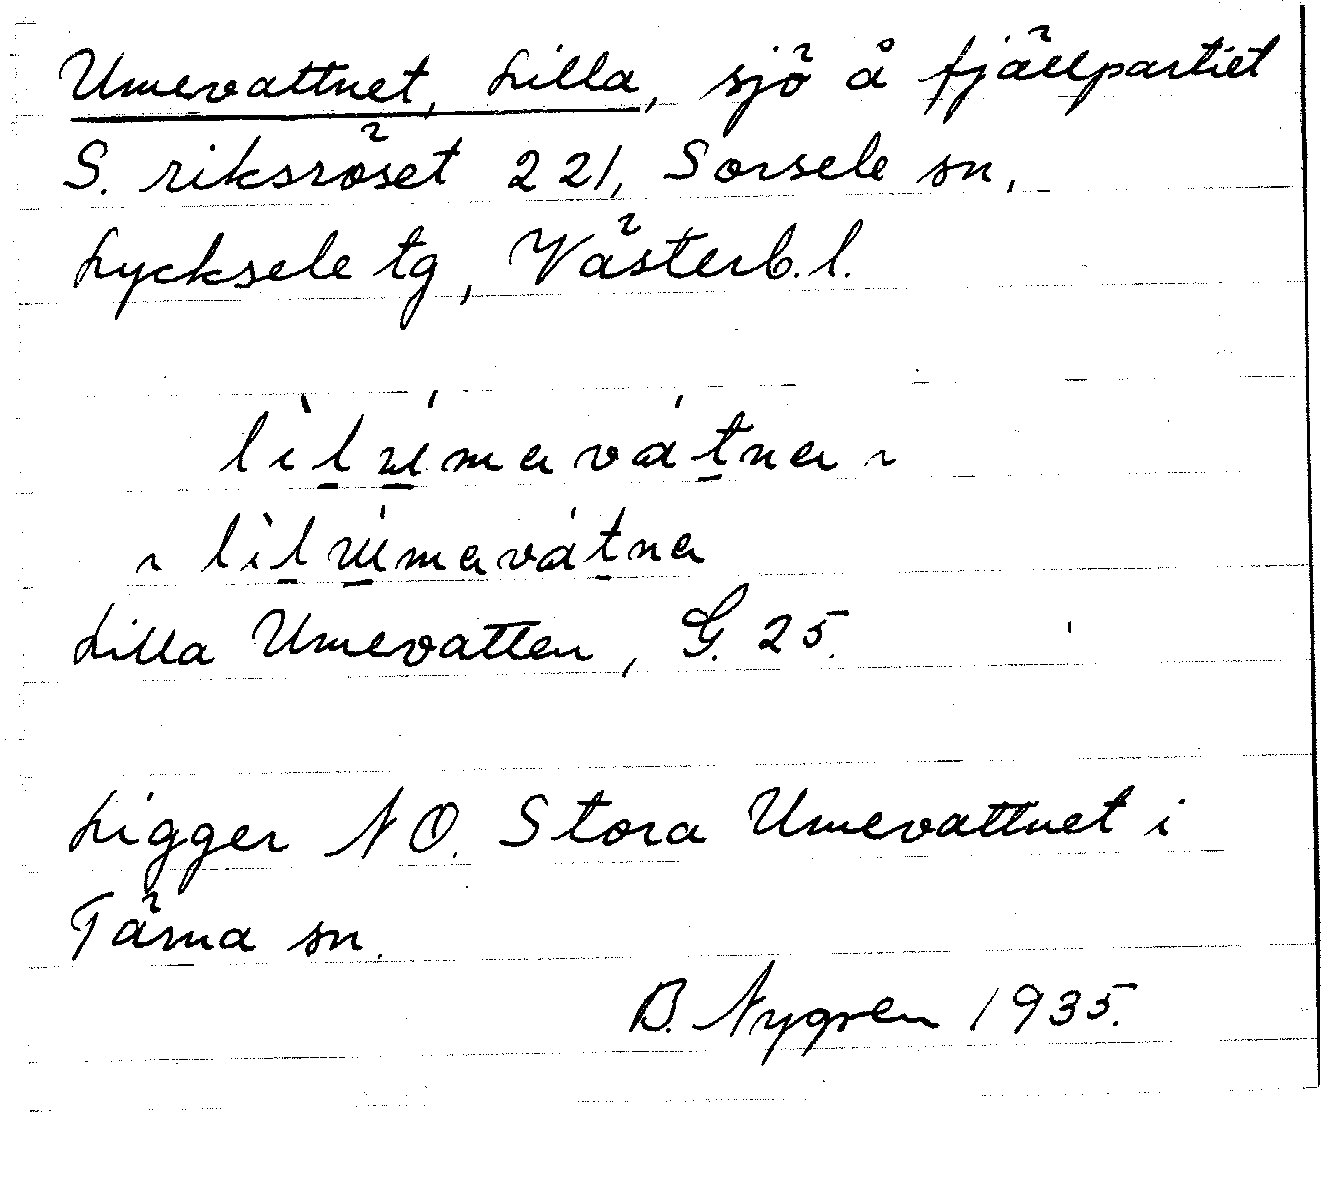 Umevattnet, Lilla, sjö å fjällpartiet
S. riksröset 221, Sorsele sn,
Lycksele tg, Västerb. l.
Lilla Umevatten, G. 25.
Ligger NO. Stora Umevattnet i
Tärna sn.
B. Nygren 1935.